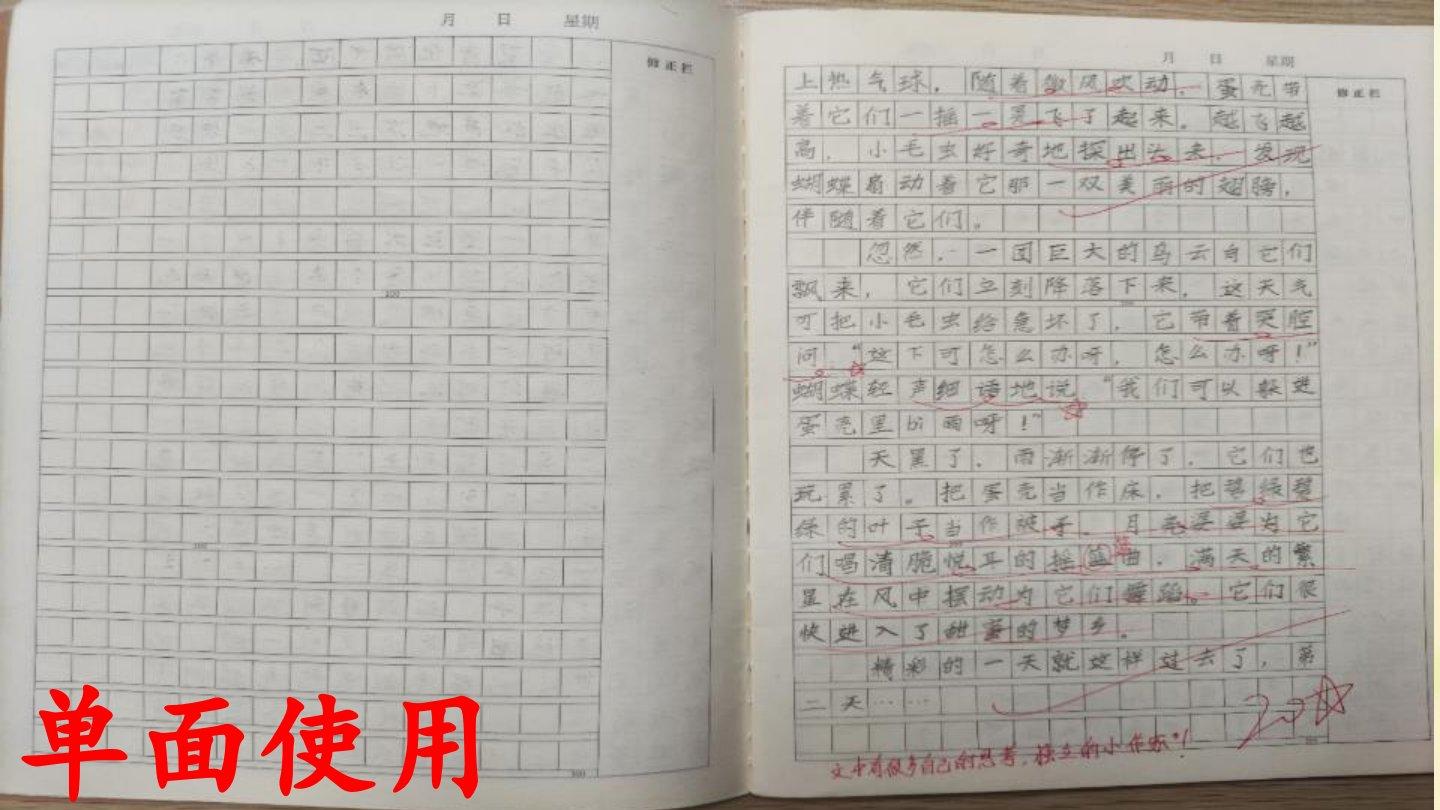 月 日 星期
修正栏
200
300
300
单面使用
月 日 星期
修正栏
上热气球，随着微风吹动，蛋壳带
着它们一摇一晃飞了起来。越飞越
高，小毛虫好奇地探出头来，发现
蝴蝶扇动着它那一双美丽的翅膀，
伴随着它们。
忽然，一团巨大的乌云向它们
飘来，它们立刻降落下来，这天气
可把小毛虫给急坏了，它带着哭腔
问：“这下可怎么办呀，怎么办呀！”
蝴蝶轻声细语地说：“我们可以躲进
蛋壳里bi雨呀！”
天黑了，雨渐渐停了，它们也
玩累了。把蛋壳当作床，把碧绿碧
绿的叶子当作被子。月亮婆婆为它
们唱清脆悦耳的摇篮曲，满天的繁
篮
星在风中摆动为它们舞蹈。它们很
快进入了甜蜜的梦乡。
精彩的一天就这样过去了，第
二天……
文中有很多自己的思考，独立的小作家！